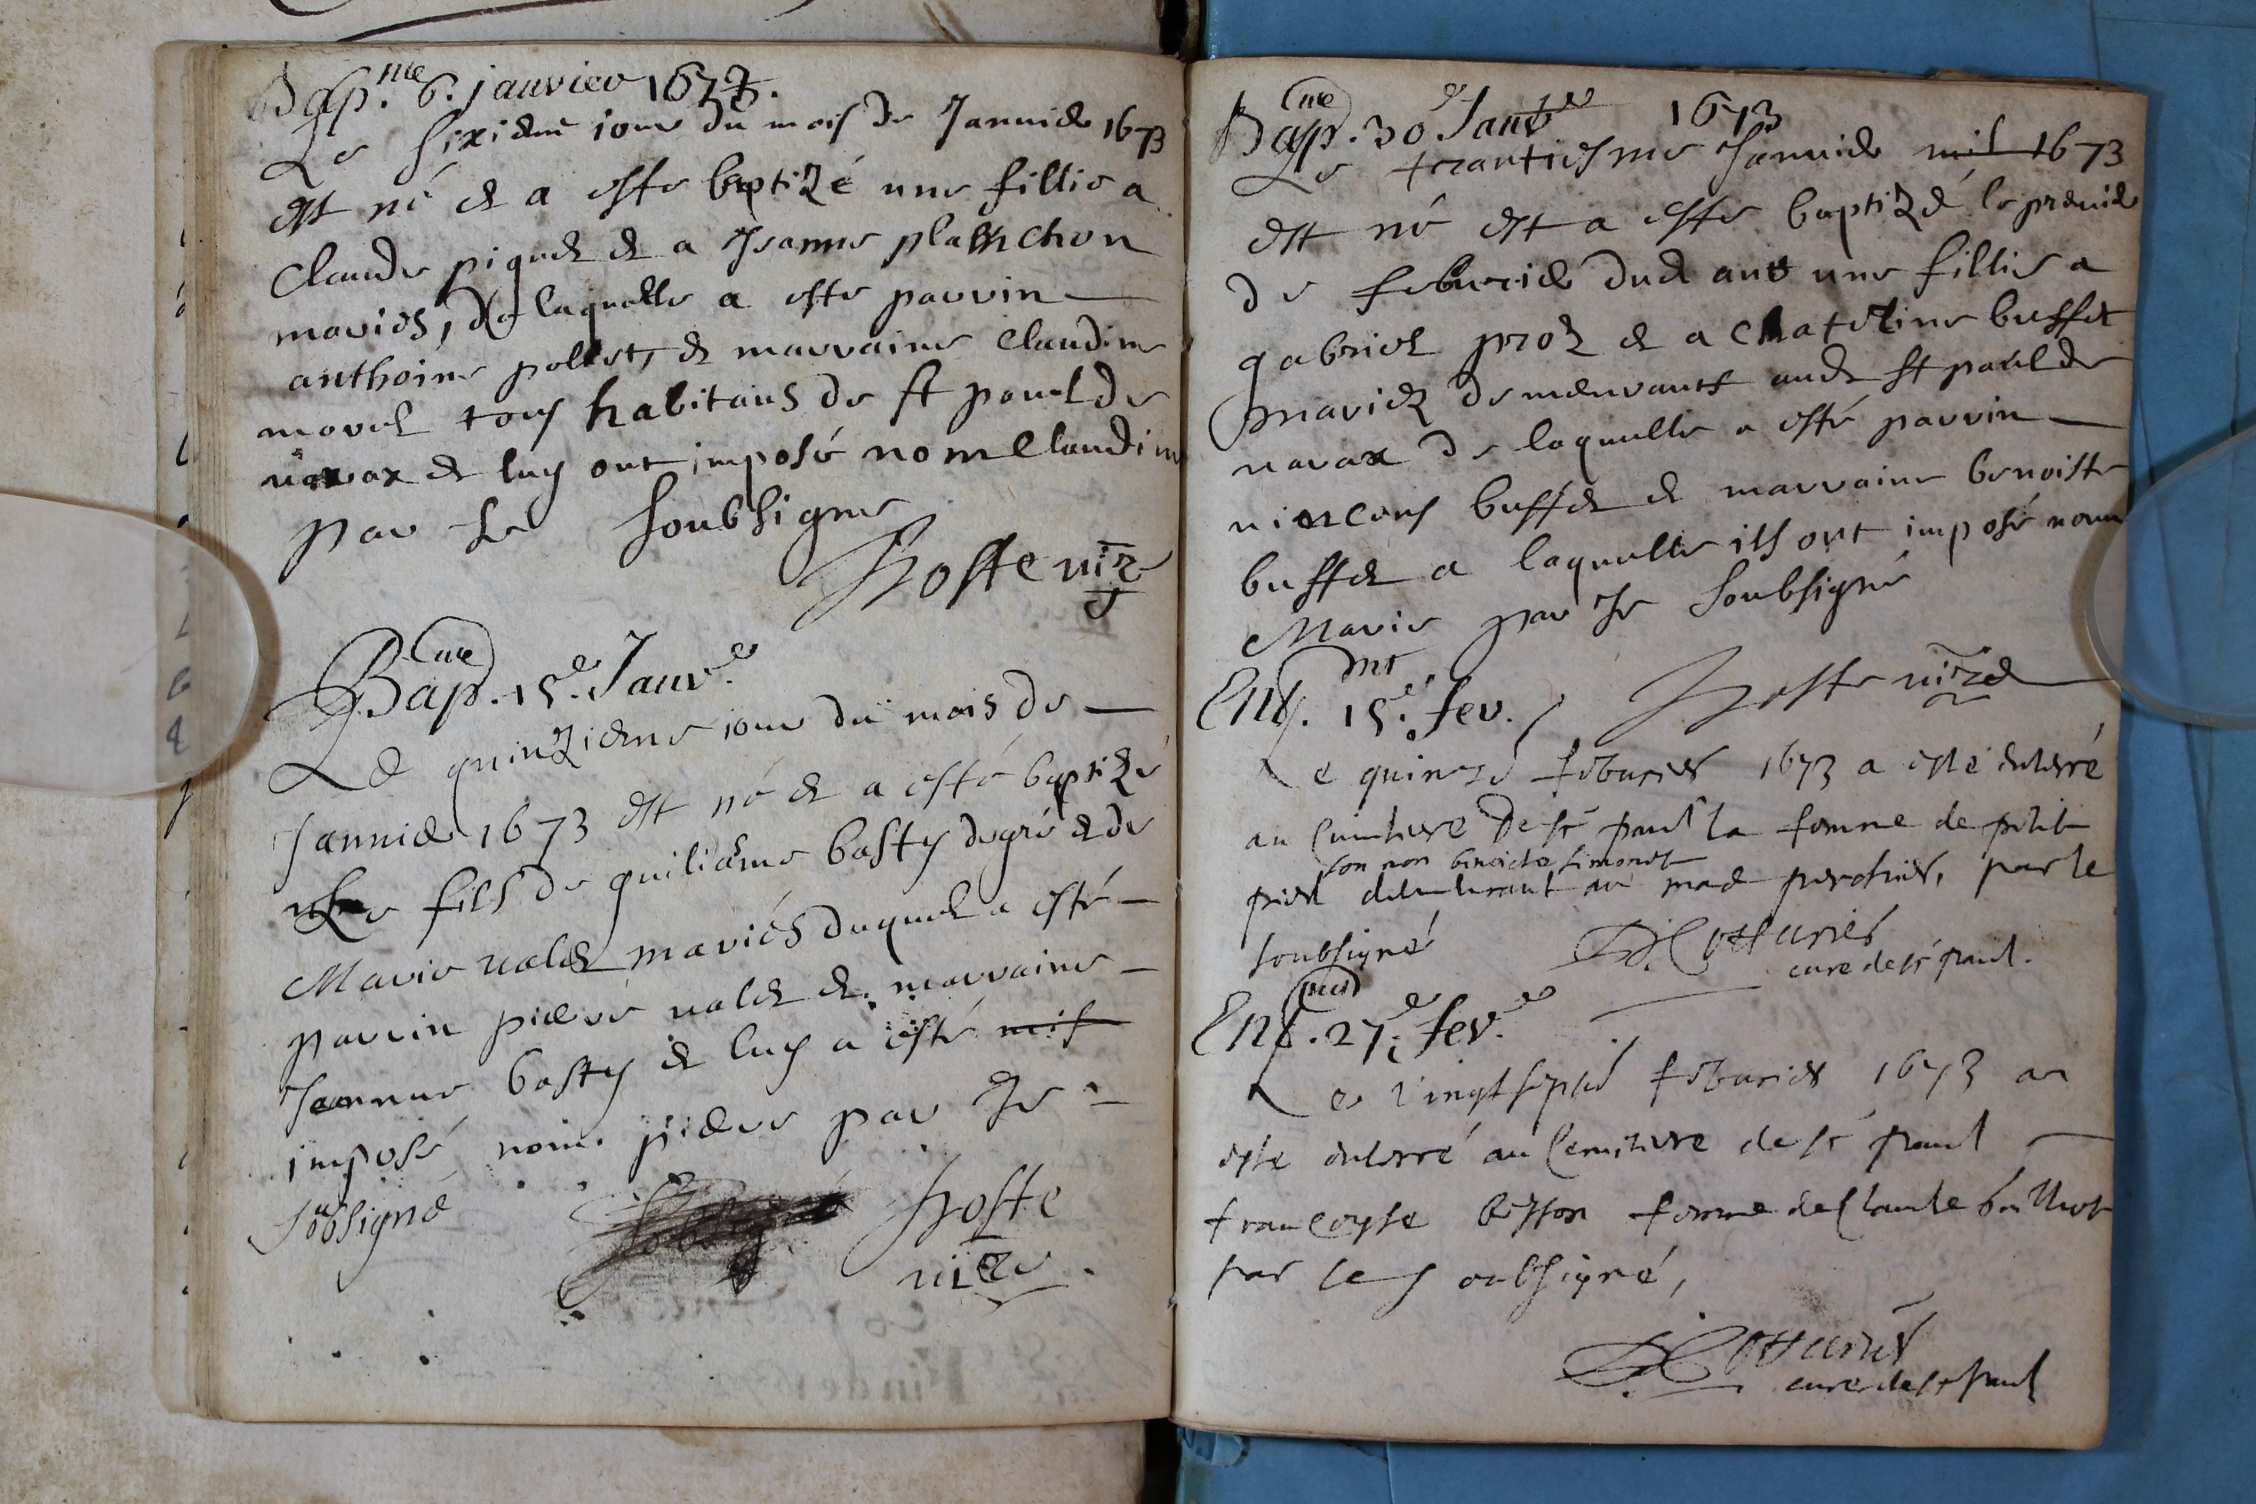 Bap.me 6. janvier 1673.
Le sixieme jour du mois de Januier 1673
est né et a este baptizé une fillie a
Claude piquet et a Jeanne planchon
mariés, de laquelle a este parrin
anthoine pollet, et marraine Claudine
morel tous habitans de st paul de
uarax et luy ont imposé nom Claudine
par Je soubsigne
hoste uire
Bap.me 15.e Janv.e
Le quinzieme jour du mois de
Januier 1673 est né et a esté baptizé
fils de guiliaume basty degré et de
Marie ualet mariés duquel a esté
parrin pierre ualet et marraine
Jeanne basty et luy a esté mis
imposé nom pierre par Je
sobsigné
hoste
uire
Bap.me 30.e Janv.e 1673
Le trantiesme Januier mil 1673
est né est a este baptizé le premier
de feburier dud ant une fillie a
gabriel proz et a Chateline buffet
mariez demeurants aud st paul de
uarax de laquelle a esté parrin
uincens buffet et marraine benoiste
buffet a laquelle ils ont imposé nom
Marie par Je soubsigné
hoste uire
Ent.mt 15.e fev.
Le quinze feburier 1673 a esté enterré
au Cimitiere de st paul la femme de petit
son nom benoicte simonet
pierre demeurant au mas perchier, par le
soubsigné
Cotturier
curé de st paul.
Ent.mt 27.e fev.e
Le vingt sept feburier 1673 a
esté enterré au Cemitiere de st paul
francoyse besson femme de Claude baillot
par le soubsigné,
Cotturier
curé de st paul